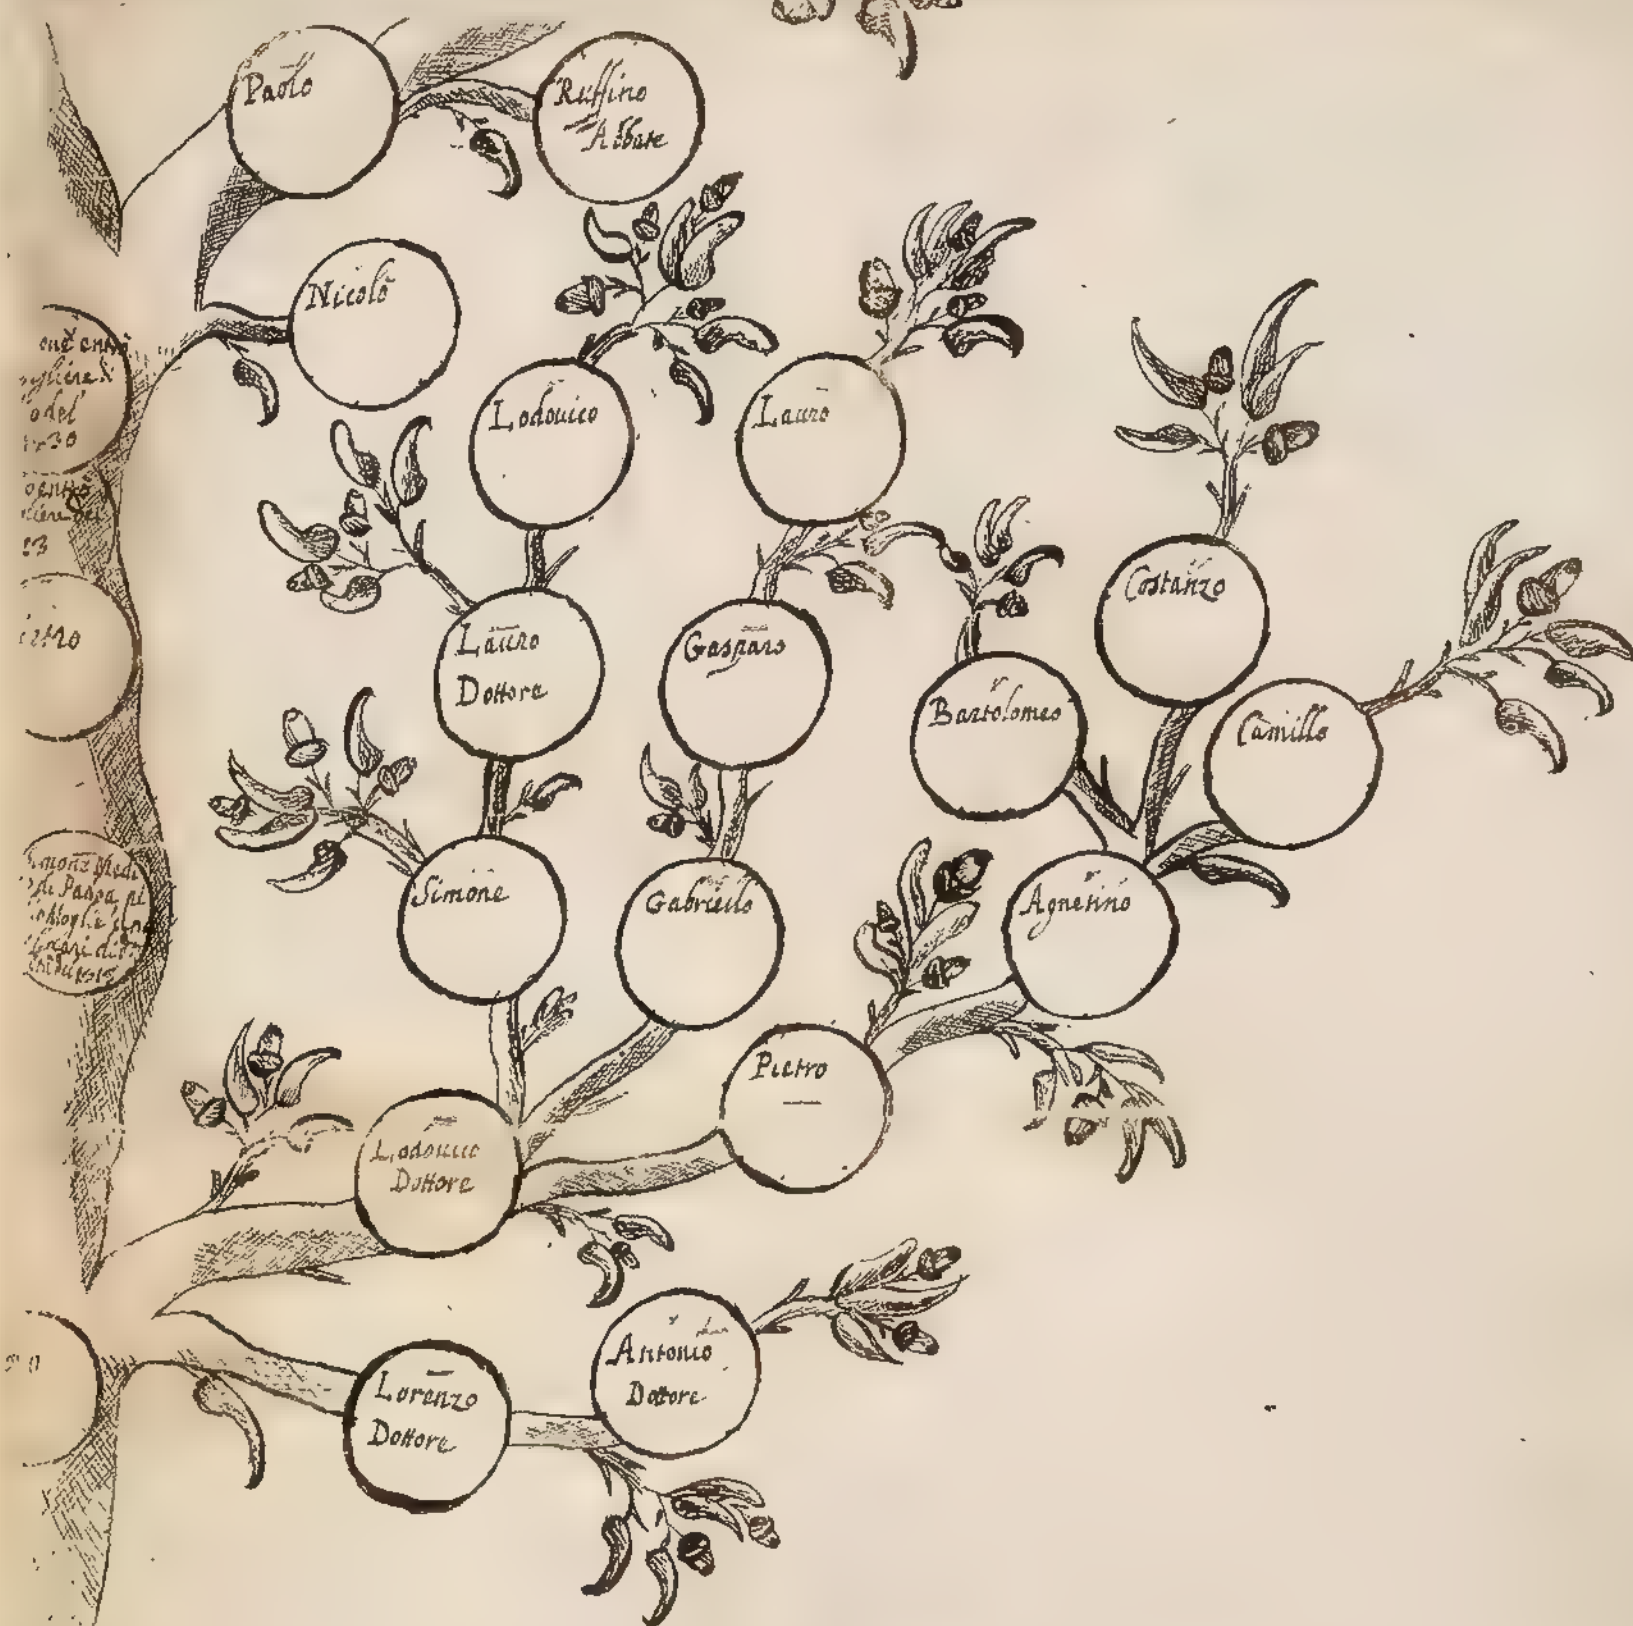 Paolo
Ruffino
Abbate
Nicolo
Lodouico
Lauro
o del
Costanzo
Lauro
Dottore
Gasparo
Bartolomeo
Camillo
Simone
Gabriello
Agnetino
Pietro
Lodouico
Dottore
Antonio
Dottore
Lorenzo
Dottore